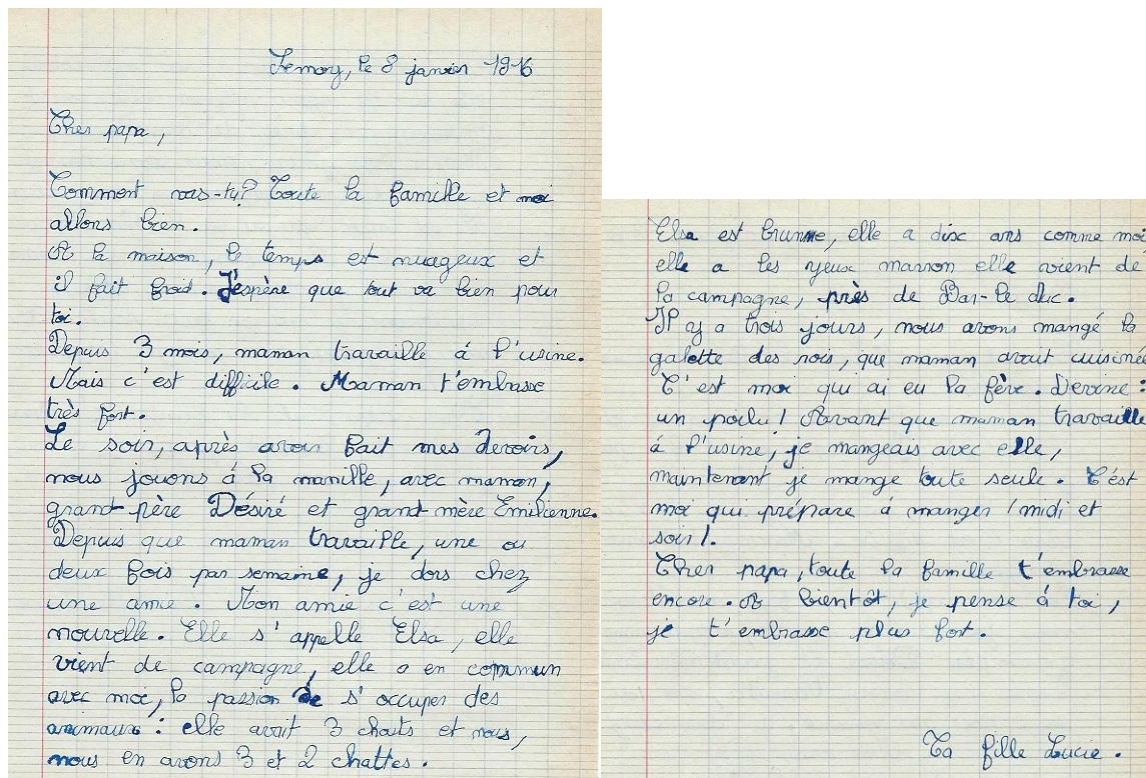 Lemoy, le 8 janvier 1916
Cher papa,
Comment vas-tu? Toute la famille et moi
allons bien.
A la maison, le temps est nuageux et
il fait froid. J'espère que tout va bien pour
toi.
Depuis 3 mois, maman travaille à l'usine.
Mais c'est difficile. Maman t'embrasse
très fort.
Le soir, après avoir fait mes devoirs,
nous jouons à la manille, avec maman,
grand-père Désiré et grand mère Emilienne.
Depuis que maman travaille, une ou
deux fois par semaine, je dors chez
une amie. Mon amie c'est une
nouvelle. Elle s'appelle Elsa, elle
vient de campagne, elle a en commun
avec moi, la passion de s'occuper des
animaux : elle avait 3 chats et nous,
nous en avons 3 et 2 chattes.
Elsa est brunne, elle a dix ans comme moi
elle a les yeux marron elle vient de
la campagne, près de Bar-le duc.
Il y a trois jours, nous avons mangé la
galette des rois, que maman avait cuisinée
C'est moi qui ai eu la fève. Devine :
un poilu! Avant que maman travaille
à l'usine, je mangeais avec elle,
maintenant je mange toute seule. C'est
moi qui prépare à manger (midi et
soir).
Cher papa, toute la famille t'embrasse
encore. A bientôt, je pense à toi,
je t'embrasse plus fort.
Ta fille Lucie.